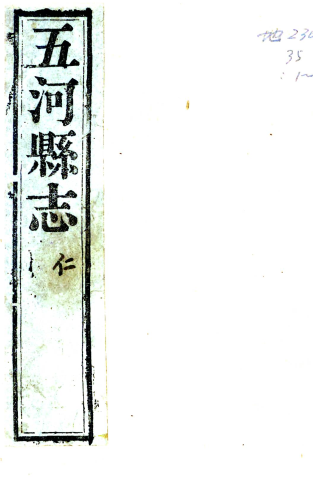 五河縣志
仁
地 230
35
: 1~